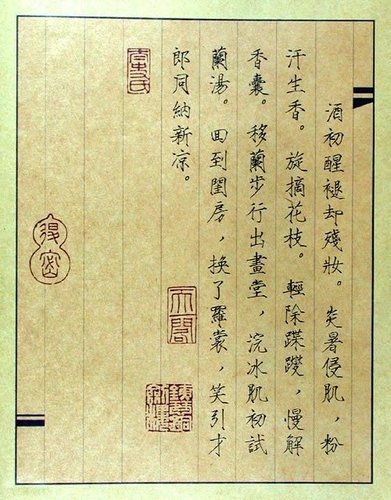 酒初醒褪却殘妝。炎暑侵肌，粉
汗生香。旋摘花枝。輕除蹀躞，慢解
香囊。移蘭步行出畫堂，浣冰肌初試
蘭湯。回到閨房，換了羅裳，笑引才
郎同納新涼。